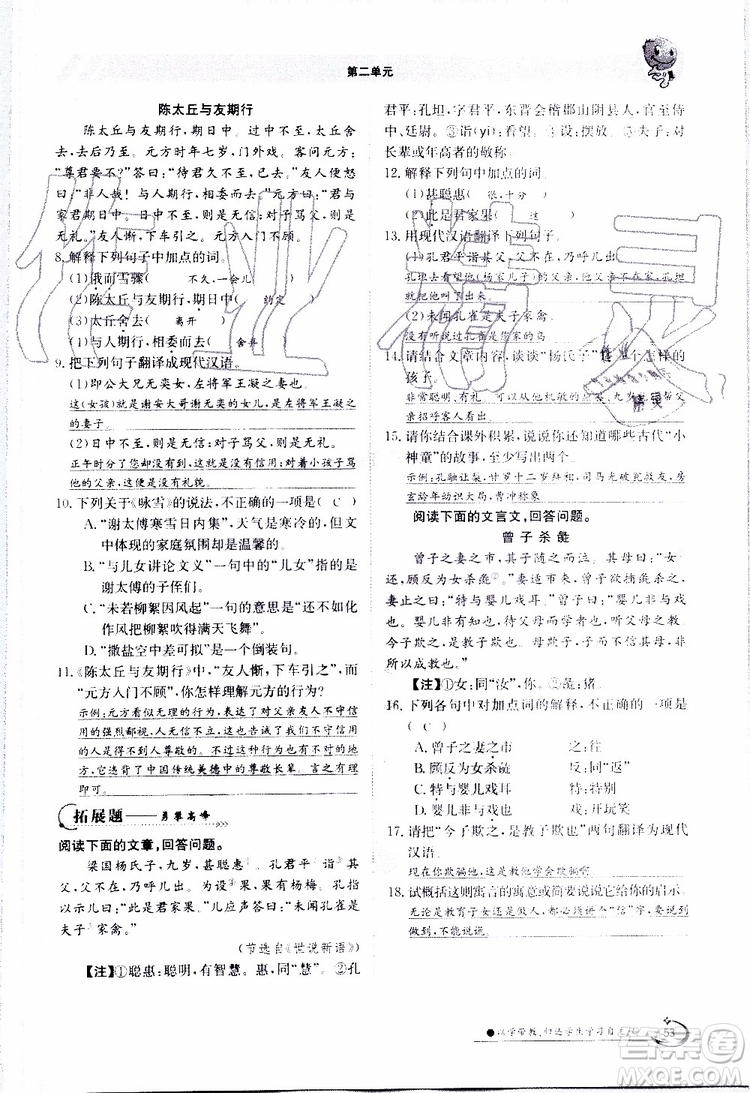 第二单元
陈太丘与友期行
陈太丘与友期行，期日中。过中不至，太丘舍
去，去后乃至。元方时年七岁，门外戏。客问元方：
“尊君在不？”答曰：“待君久不至，已去。”友人便怒
曰：“非人哉！与人期行，相委而去。”元方曰：“君与
家君期日中。日中不至，则是无信；对子骂父，则是
无礼。”友人惭，下车引之。元方入门不顾。
8. 解释下列句子中加点的词。
(1)俄而雪骤（不久，一会儿）
(2)陈太丘与友期行，期日中（约定）
(3)太丘舍去（离开）
(4)与人期行，相委而去（舍弃）
9. 把下列句子翻译成现代汉语。
(1)即公大兄无奕女，左将军王凝之妻也。
这(女孩)就是谢安大哥谢无奕的女儿，左将军王凝之
的妻子。
(2)日中不至，则是无信；对子骂父，则是无礼。
正午时分了您都没有到，这就是没有信用；对孩子骂他
的父亲，这就是没有礼貌。
10. 下列关于《咏雪》的说法，不正确的一项是（ C ）
A. “谢太傅寒雪日内集”，天气是寒冷的，但文
中体现的家庭氛围却是温馨的。
B. “与儿女讲论文义”一句中的“儿女”指的是
谢太傅的子侄们。
C. “未若柳絮因风起”一句的意思是“还不如化
作风把柳絮吹得满天飞舞”。
D. “撒盐空中差可拟”是一个倒装句。
11. 《陈太丘与友期行》中，“友人惭，下车引之”，而
“元方入门不顾”，你怎样理解元方的行为？
示例：元方看似无理的行为，表达了对父亲友人不尊重父亲
的强烈鄙视，人无信不立，友人这样的行为是得不到人
们的尊敬的。不过这种行为也有不对的地方，对长辈要
尊敬，这是中国传统美德中的尊敬长辈，有理有据说明
即可。
拓展题——勇攀高峰
阅读下面的文章，回答问题。
梁国杨氏子，九岁，甚聪惠①。孔君平②诣③其
父，父不在，乃呼儿出。为设④果，果有杨梅。孔指
以示儿曰：“此是君家果。”儿应声答曰：“未闻孔雀是
夫子⑤家禽。”
（节选自《世说新语》）
【注】①聪惠：聪明，有智慧。惠，同“慧”。②孔
君平：孔坦，字君平，东晋会稽郡山阴县人，官至侍
中、廷尉。③诣(yì)：看望。④设：摆放。⑤夫子：对
长辈或年高者的敬称。
12. 解释下列句中加点的词。
(1)甚聪惠（很，十分）
(2)此是君家果（这）
13. 用现代汉语翻译下列句子。
(1)孔君平诣其父，父不在，乃呼儿出
孔坦去看望他(杨家儿子)的父亲，他父亲不在，于是
就叫他出来。
(2)未闻孔雀是夫子家禽。
没听说过孔雀是您家的鸟
14. 请结合文章内容，谈谈“杨氏子”是一个怎样的
孩子。
父亲招呼客人出来。
15. 请你结合课外积累，说说你还知道哪些古代“小
神童”的故事，至少写出两个。
示例：孔融让梨，甘罗十二岁拜相，司马光砸缸救友，房
玄龄年幼识大局，曹冲称象
阅读下面的文言文，回答问题。
曾子杀彘
曾子之妻之市，其子随之而泣。其母曰：“女①
还，顾反为女杀彘②。”妻适市来，曾子欲捕彘杀之，
妻止之曰：“特与婴儿戏耳。”曾子曰：“婴儿非与戏
也。婴儿非有知也，待父母而学者也，听父母之教。
今子欺之，是教子欺也。母欺子，子而不信其母，
非所以成教也。”
【注】①女：同“汝”，你。②彘：猪。
16. 下列各句中对加点词的解释，不正确的一项是
（ C ）
A. 曾子之妻之市 之：往
B. 顾反为女杀彘 反：同“返”
C. 特与婴儿戏耳 特：特别
D. 婴儿非与戏也 戏：开玩笑
17. 请把“今子欺之，是教子欺也”两句翻译为现代
汉语。
现在你欺骗他，这就是教孩子欺骗啊。
18. 试概括这则寓言的寓意或简要说说它给你的启示。
无论是教育子女还是做人，都必须讲个“信”字，要说到
做到，不能说谎。
53
答案圈
MXQE.COM